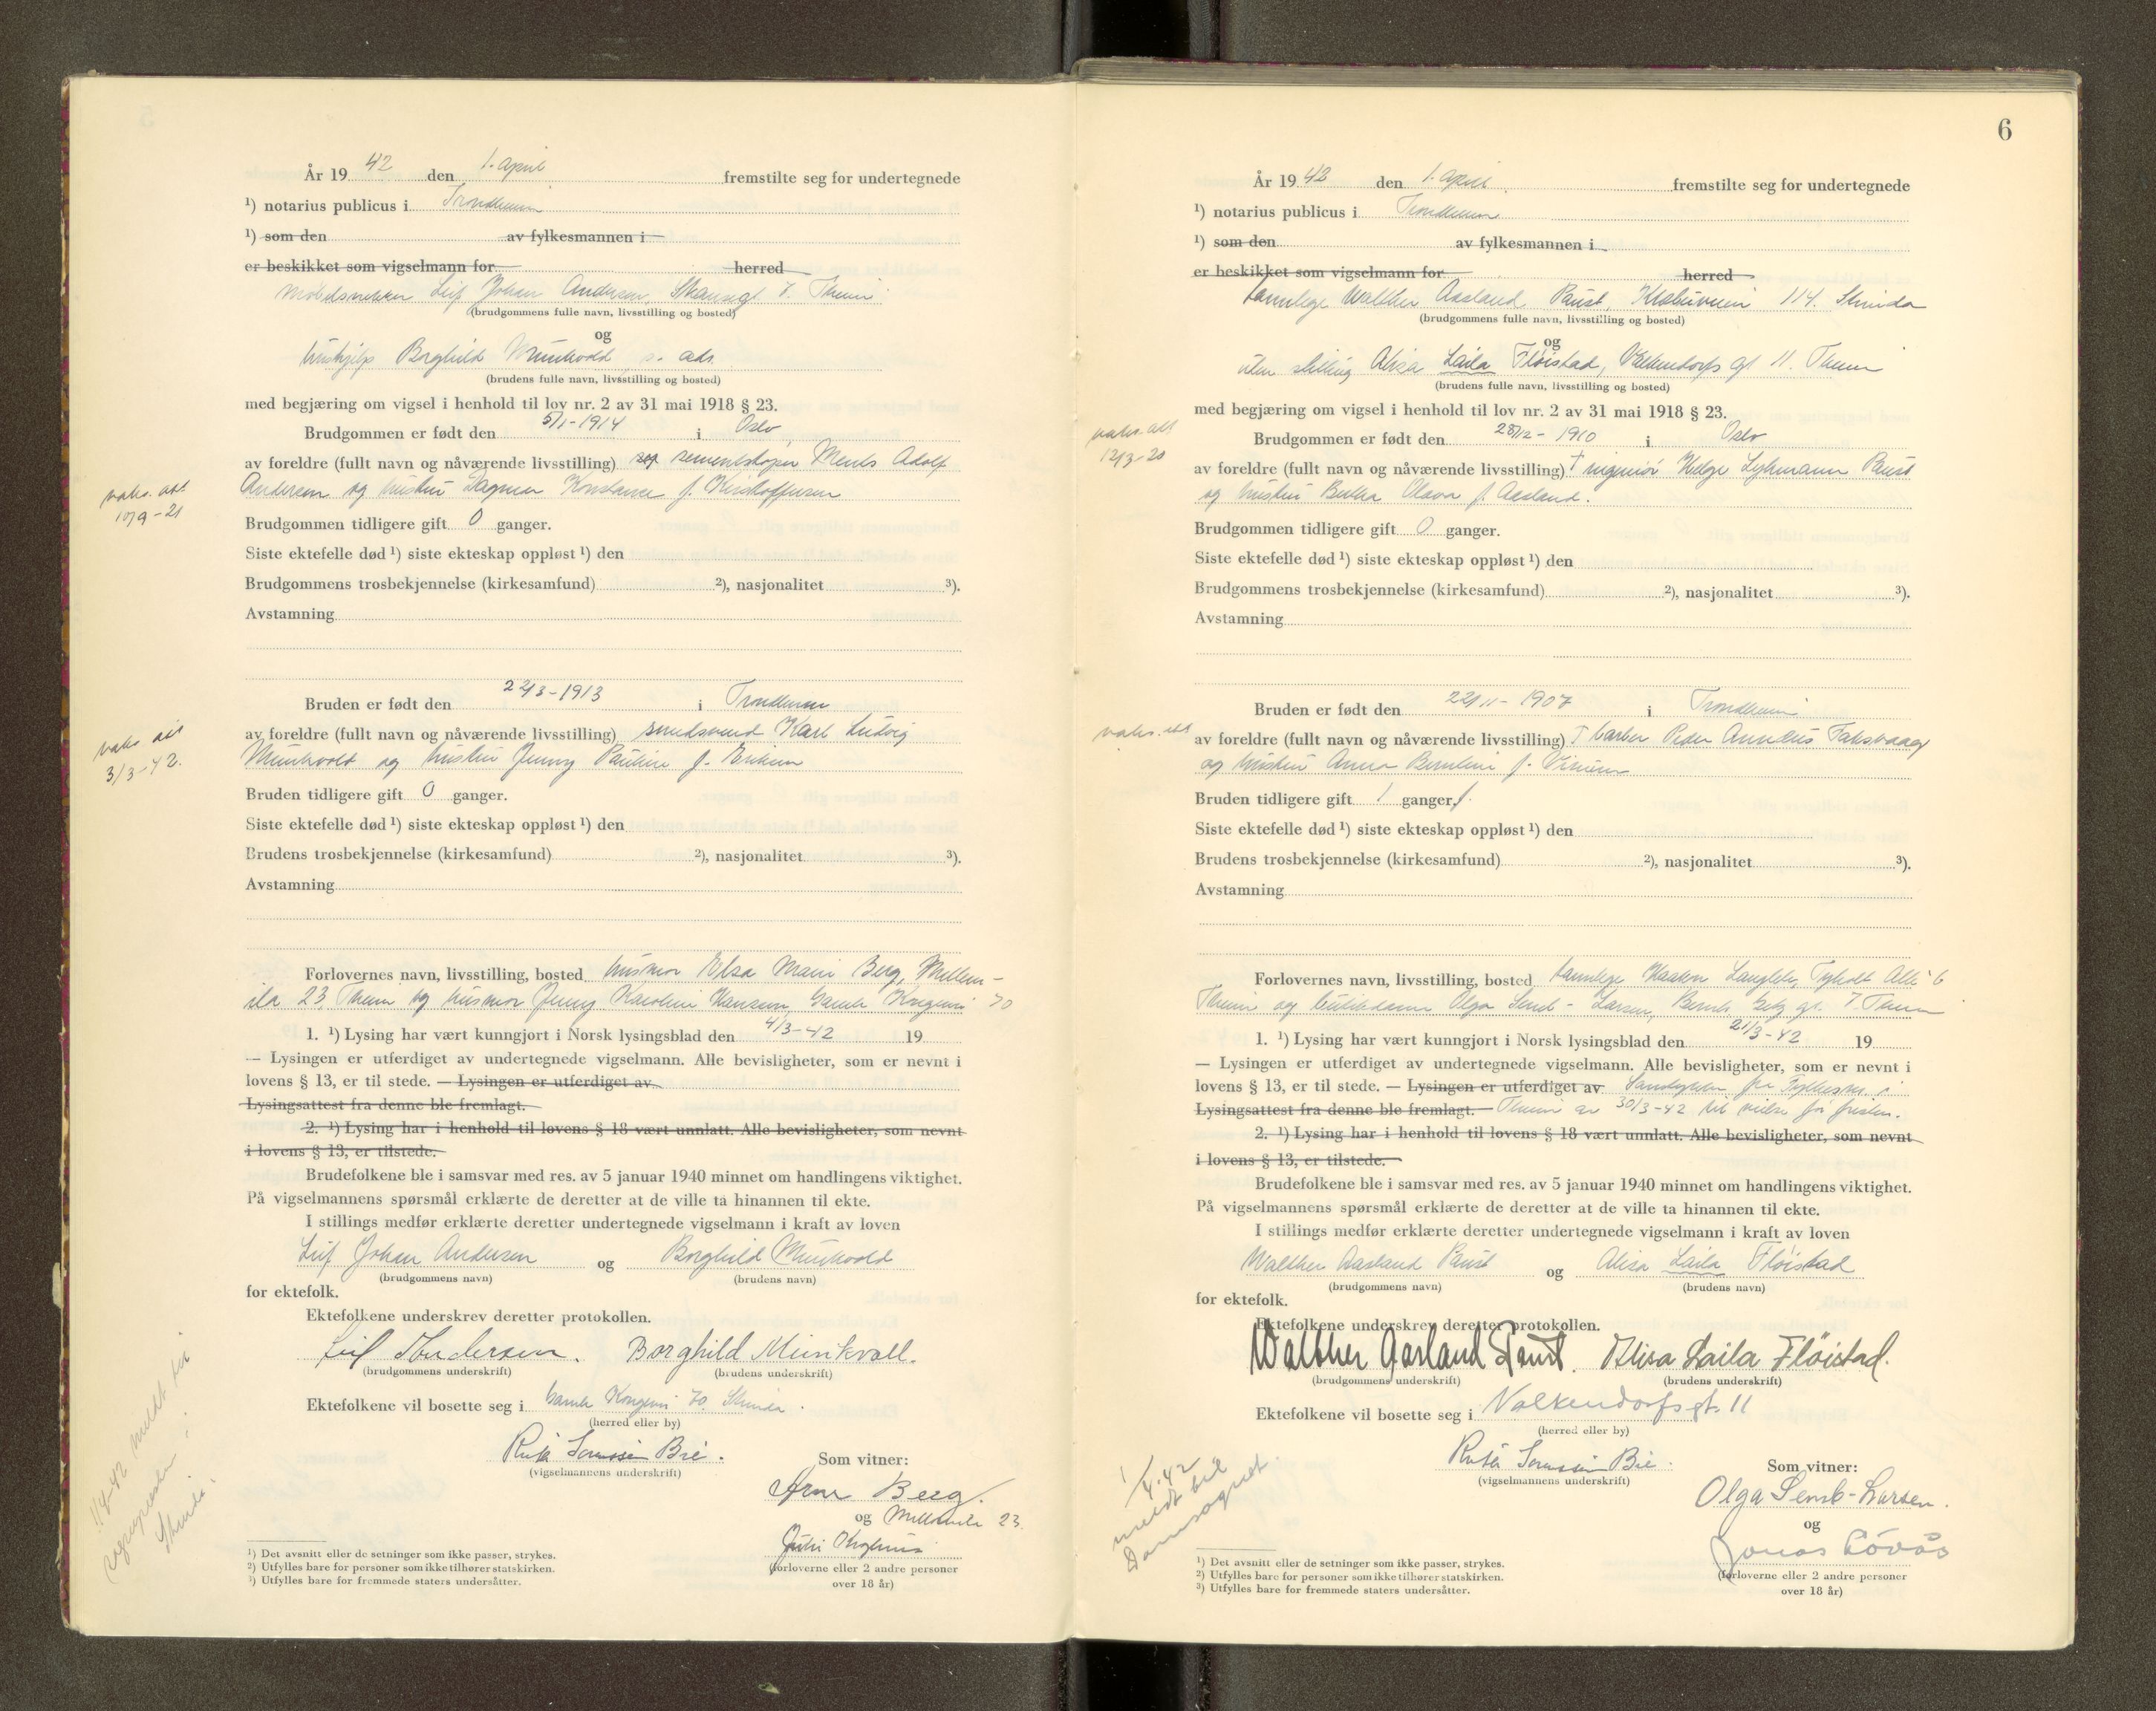 År 19 42 den 1. april fremstilte seg for undertegnede
¹) notarius publicus i Trondheim
¹) som den av fylkesmannen i
er beskikket som vigselmann for herred
møbelsnekker Leif Johan Andersen, Skansegt 7. Theim
(brudgommens fulle navn, livsstilling og bosted)
og
hushjelp Borghild Munkvold s. adr.
(brudens fulle navn, livsstilling og bosted)
med begjæring om vigsel i henhold til lov nr. 2 av 31 mai 1918 § 23.
Brudgommen er født den 5/1-1914 i Oslo
av foreldre (fullt navn og nåværende livsstilling) sementstøper Adolf
Andersen og hustru Dagmar Konstance f. Kristoffersen
vaks. att.
10/9-21
Brudgommen tidligere gift 0 ganger.
Siste ektefelle død ¹) siste ekteskap oppløst ¹) den
Brudgommens trosbekjennelse (kirkesamfund) ²), nasjonalitet ³).
Avstamning
Bruden er født den 22/3-1913 i Trondheim
av foreldre (fullt navn og nåværende livsstilling) Karl Ludvig
Munkvold og hustru Jenny Pauline f. Eriksen
vaks att
3/3-42.
Bruden tidligere gift 0 ganger.
Siste ektefelle død ¹) siste ekteskap oppløst ¹) den
Brudens trosbekjennelse (kirkesamfund) ²), nasjonalitet ³).
Avstamning
Forlovernes navn, livsstilling, bosted husmor Elsa Marie Berg, Mellem-
ila 23 Theim og husmor Jenny Karoline Hansen, Gamle Kongevei 70
1. ¹) Lysing har vært kunngjort i Norsk lysingsblad den 4/3-42 19
— Lysingen er utferdiget av undertegnede vigselmann. Alle bevisligheter, som er nevnt i
lovens § 13, er til stede. — Lysingen er utferdiget av
Lysingsattest fra denne ble fremlagt.
2. ¹) Lysing har i henhold til lovens § 18 vært unnlatt. Alle bevisligheter, som nevnt
i lovens § 13, er tilstede.
Brudefolkene ble i samsvar med res. av 5 januar 1940 minnet om handlingens viktighet.
På vigselmannens spørsmål erklærte de deretter at de ville ta hinannen til ekte.
I stillings medfør erklærte deretter undertegnede vigselmann i kraft av loven
Leif Johan Andersen og Borghild Munkvold
(brudgommens navn) (brudens navn)
for ektefolk.
Ektefolkene underskrev deretter protokollen.
Leif Andersen. Borghild Munkvoll.
(brudgommens underskrift) (brudens underskrift)
Ektefolkene vil bosette seg i Gamle Kongevei 70. Strinda.
(herred eller by)
Ruth Sorenssen Bie.
(vigselmannens underskrift)
Som vitner:
Arne Berg.
og Mellomila 23.
(forloverne eller 2 andre personer
over 18 år)
1/4-42 meldt til
sogneprest i
Strinda.
¹) Det avsnitt eller de setninger som ikke passer, strykes.
²) Utfylles bare for personer som ikke tilhører statskirken.
³) Utfylles bare for fremmede staters undersåtter.
6
År 19 42 den 1. april fremstilte seg for undertegnede
¹) notarius publicus i Trondheim
¹) som den av fylkesmannen i
er beskikket som vigselmann for herred
tannlege Walther Aasland Paust, Klæbuveien 114. Strinda
(brudgommens fulle navn, livsstilling og bosted)
og
uten stilling Alisa Laila Fløistad, Valkendorfs gt 11. Theim
(brudens fulle navn, livsstilling og bosted)
med begjæring om vigsel i henhold til lov nr. 2 av 31 mai 1918 § 23.
vaks. att
12/3-20
Brudgommen er født den 28/12-1910 i Oslo
av foreldre (fullt navn og nåværende livsstilling) † ingeniør Helge Paust
og hustru Olava f. Aasland.
Brudgommen tidligere gift 0 ganger.
Siste ektefelle død ¹) siste ekteskap oppløst ¹) den
Brudgommens trosbekjennelse (kirkesamfund) ²), nasjonalitet ³).
Avstamning
Bruden er født den 22/11-1907 i Trondheim
vaks. att
av foreldre (fullt navn og nåværende livsstilling) † barber Peder
og hustru Anna f.
Bruden tidligere gift 1 ganger.
Siste ektefelle død ¹) siste ekteskap oppløst ¹) den
Brudens trosbekjennelse (kirkesamfund) ²), nasjonalitet ³).
Avstamning
Forlovernes navn, livsstilling, bosted tannlege Haakon Tyholt Alle 6
Theim og Olga Semb-Larsen, gt. 7. Theim
1. ¹) Lysing har vært kunngjort i Norsk lysingsblad den 21/3-42 19
— Lysingen er utferdiget av undertegnede vigselmann. Alle bevisligheter, som er nevnt i
lovens § 13, er til stede. — Lysingen er utferdiget av Samtykke fra Fylkesm. i
Lysingsattest fra denne ble fremlagt. — Theim av 30/3-42 til vielse før fristen.
2. ¹) Lysing har i henhold til lovens § 18 vært unnlatt. Alle bevisligheter, som nevnt
i lovens § 13, er tilstede.
Brudefolkene ble i samsvar med res. av 5 januar 1940 minnet om handlingens viktighet.
På vigselmannens spørsmål erklærte de deretter at de ville ta hinannen til ekte.
I stillings medfør erklærte deretter undertegnede vigselmann i kraft av loven
Walther Aasland Paust og Alisa Laila Fløistad
(brudgommens navn) (brudens navn)
for ektefolk.
Ektefolkene underskrev deretter protokollen.
Walther Aasland Paust. Alisa Laila Flöistad.
(brudgommens underskrift) (brudens underskrift)
Ektefolkene vil bosette seg i Valkendorfsgt. 11
(herred eller by)
Ruth Sorenssen Bie.
(vigselmannens underskrift)
Som vitner:
Olga Semb-Larsen.
og
Jonas Lövås
(forloverne eller 2 andre personer
over 18 år)
1/4-42
meldt til
Domsognet.
¹) Det avsnitt eller de setninger som ikke passer, strykes.
²) Utfylles bare for personer som ikke tilhører statskirken.
³) Utfylles bare for fremmede staters undersåtter.